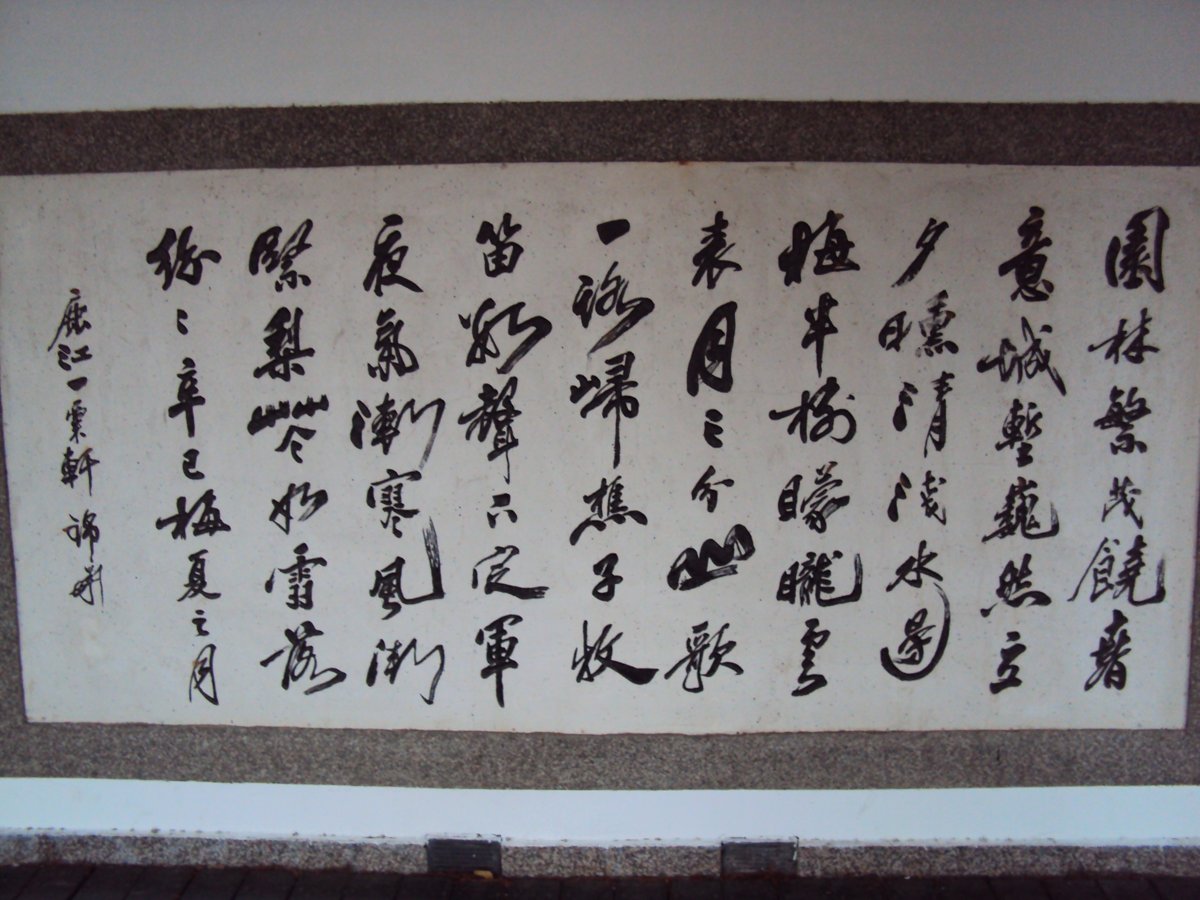 園林繁茂饒春
意城塹巍然立
夕曛清淺水邊
梅半樹朦朧雲
表月三分山歌
一路歸樵子牧
笛數聲定軍
夜氣漸寒風漸
緊梨花如雪落
紛々辛巳梅夏之月
鹿江一粟軒